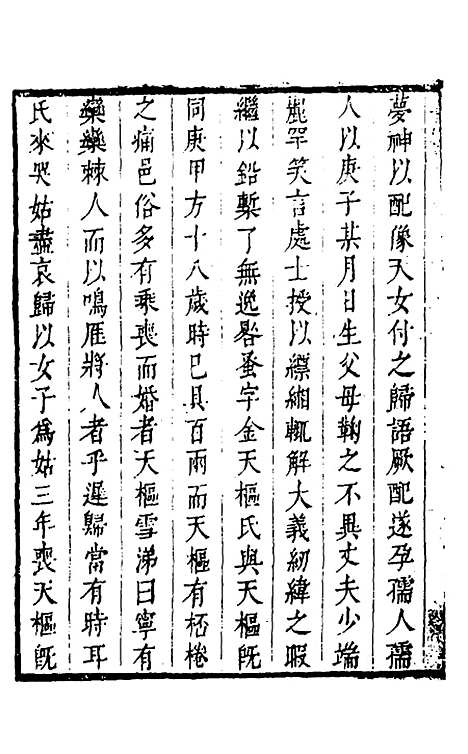 夢神以配像天女付之歸語厥配遂孕孺人孺
人以庚子某月日生父母鞠之不異丈夫少端
麗罕笑言處士授以縹緗輒解大義紉緯之暇
繼以鉛槧了無逸晷蚤字金天樞氏與天樞既
同庚甲方十八歲時已具百兩而天樞有桮棬
之痛邑俗多有乘喪而婚者天樞雪涕曰寧有
欒欒棘人而以鳴雁將人者乎遲歸當有時耳
氏來哭姑盡哀歸以女子為姑三年喪天樞既